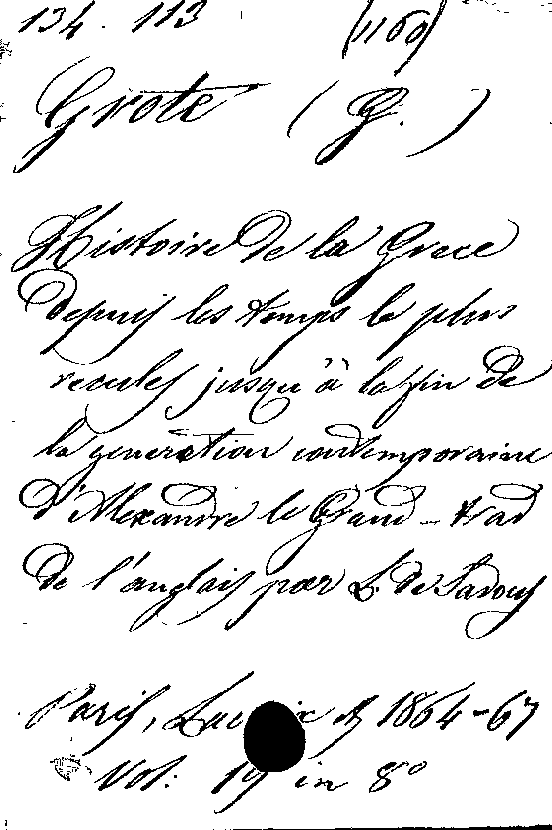 134. 113 (1160)
Grote (G.)
Histoire de la Grece
depuis les temps le plus
recules jusqu'à la fin de
la generation contemporaine
d'Alexandre le Grand - trad
de l'anglais par L. de Sadous
Paris, 1864-67
Vol: 19 in 8º